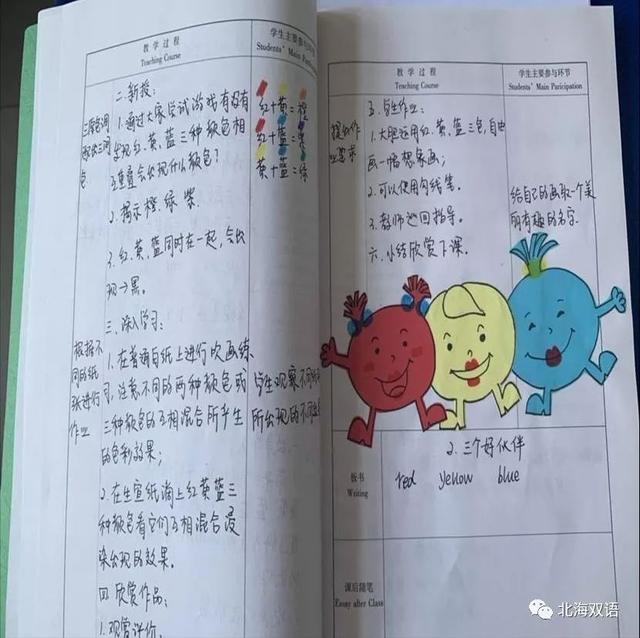 教学过程
Teaching Course
学生主要参与环节
Students' Main Paricipation
二. 新授:
1. 通过大家尝试游戏有没有
发现红、黄、蓝三种颜色相
互重叠会出现什么颜色?
2. 揭示橙. 绿. 紫.
3. 红、黄、蓝同时在一起,会出
现→黑。
三. 深入学习:
1. 在普通白纸上进行吹画练
习,注意不同的两种颜色或
三种颜色的互相混合所产生
的色彩效果;
2. 在生宣纸滴上红黄蓝三
种颜色看它们互相混合浸
染出现的效果。
四. 欣赏作品:
1. 观赏评价.
根据不
同的纸
张进行
作业
红+黄=橙
红+蓝=紫
黄+蓝=绿
学生观察不同
所出现的不同
教学过程
Teaching Course
学生主要参与环节
Students' Main Paricipation
五. 学生作业:
1. 大胆运用红、黄、蓝三色,自由
画一幅想象画;
2. 可以使用勾线笔。
3. 教师巡回指导。
六. 小结欣赏下课。
提出作
业要求
给自己的画取一个美
丽有趣的名字.
板书
Writing
2. 三个好伙伴
red yellow blue
课后随笔
Essay after Class
北海双语